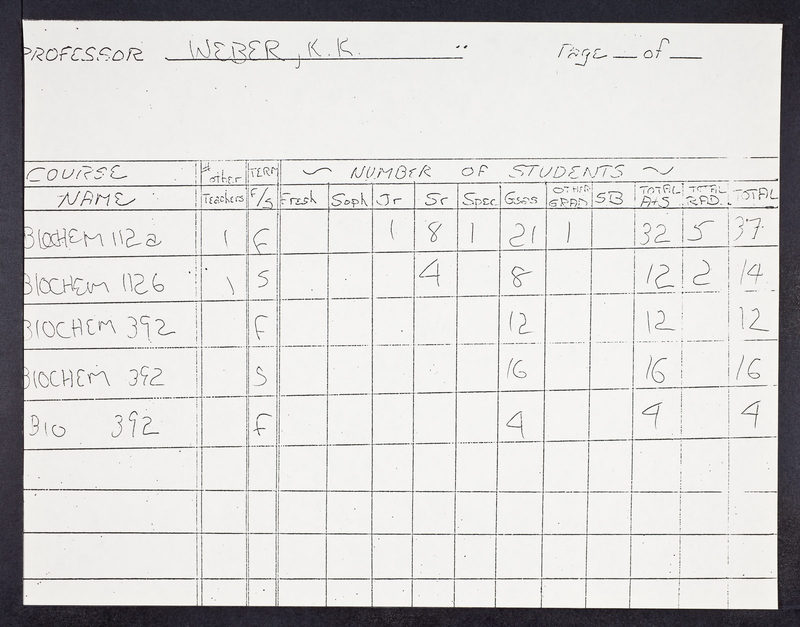 PROFESSOR WEBER, K.K. Page of
COURSE # other TERM ~ NUMBER OF STUDENTS ~
NAME Teachers F/S Fresh Soph Jr Sr Spec Gsas OTHER GRAD SB TOTAL A+S TOTAL RAD. TOTAL
BIOCHEM 112a 1 F 1 8 1 21 1 32 5 37
BIOCHEM 112b 1 S 4 8 12 2 14
BIOCHEM 392 F 12 12 12
BIOCHEM 392 S 16 16 16
BIO 392 F 4 4 4